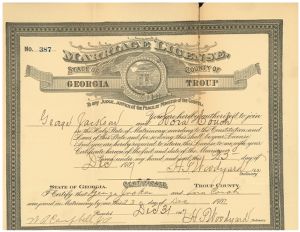 No. 387
MARRIAGE LICENSE.
STATE OF COUNTY OF
GEORGIA TROUP
To any Judge, Justice of the Peace or Minister of the Gospel:
You are hereby authorized to join
George Jackson and Nora Couch
in the Holy State of Matrimony according to the Constitution and
Laws of this State and for so doing this shall be your License
And you are hereby required to return this License to me with your
Certificate hereon of the fact and date of the Marriage
Given under my hand and seal this 23 day of
Dec 1897
CERTIFICATE.
STATE OF GEORGIA, TROUP COUNTY.
I Certify that George Jackson and Nora Couch
were joined in Matrimony by me this 23 day of Dec 1897
Dec 31